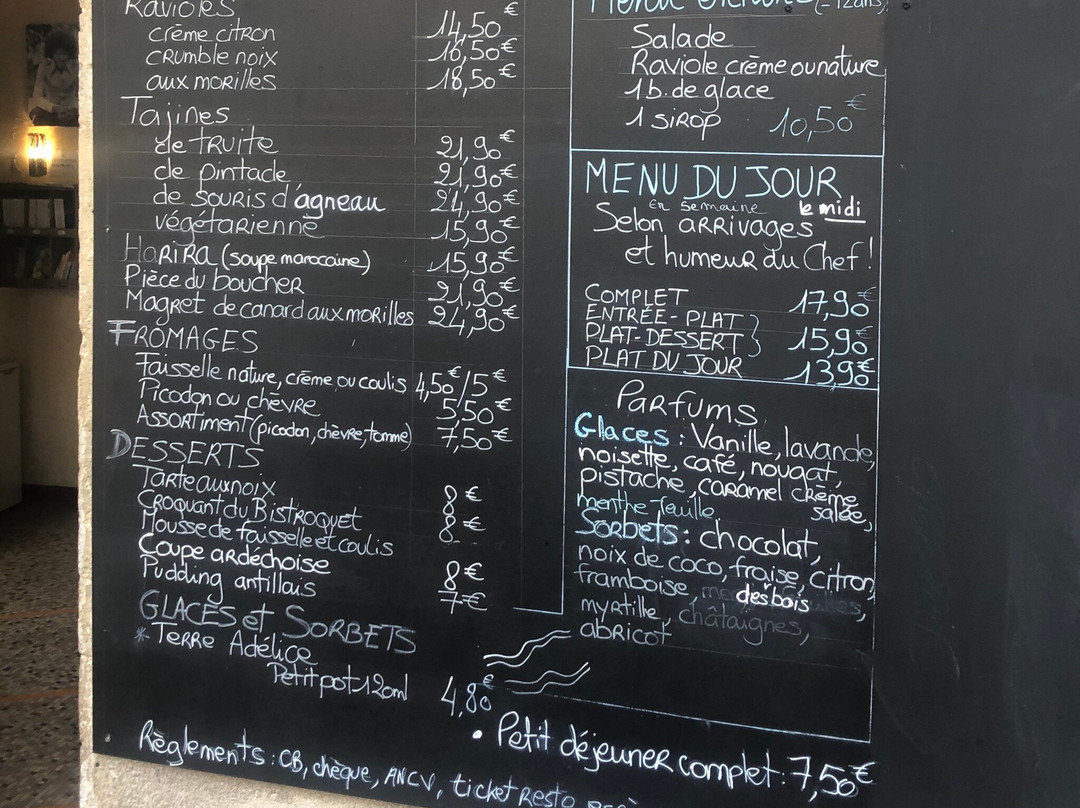 Ravioles
crème citron 14,50€
crumble noix 16,50€
aux morilles 18,50€
Tajines
de truite 21,90€
de pintade 21,90€
de souris d'agneau 24,90€
végétarienne 15,90€
Harira (soupe marocaine) 15,90€
Pièce du boucher 21,90€
Magret de canard aux morilles 24,90€
FROMAGES
Faisselle nature, crème ou coulis 4,50€/5€
Picodon ou chèvre 5,50€
Assortiment (picodon, chèvre, tomme) 7,50€
DESSERTS
Tarte aux noix 8€
Croquant du Bistroquet 8€
Mousse de faisselle et coulis
Coupe ardéchoise 8€
Pudding antillais 7€
GLACES et SORBETS
* Terre Adélice
Petit pot 120ml 4,80€
(-12ans)
Salade
Raviole crème ou nature
1 b. de glace
1 sirop 10,50€
MENU DU JOUR
en semaine le midi
Selon arrivages
et humeur du Chef !
COMPLET 17,90€
ENTRÉE-PLAT }
PLAT-DESSERT } 15,90€
PLAT DU JOUR 13,90€
Parfums
Glaces : Vanille, lavande,
noisette, café, nougat,
pistache, caramel crème
salée,
menthe-feuille
Sorbets : chocolat,
noix de coco, fraise, citron,
framboise, des bois
myrtille, châtaignes,
abricot
• Petit déjeuner complet : 7,50€
Règlements : CB, chèque, ANCV, ticket resto